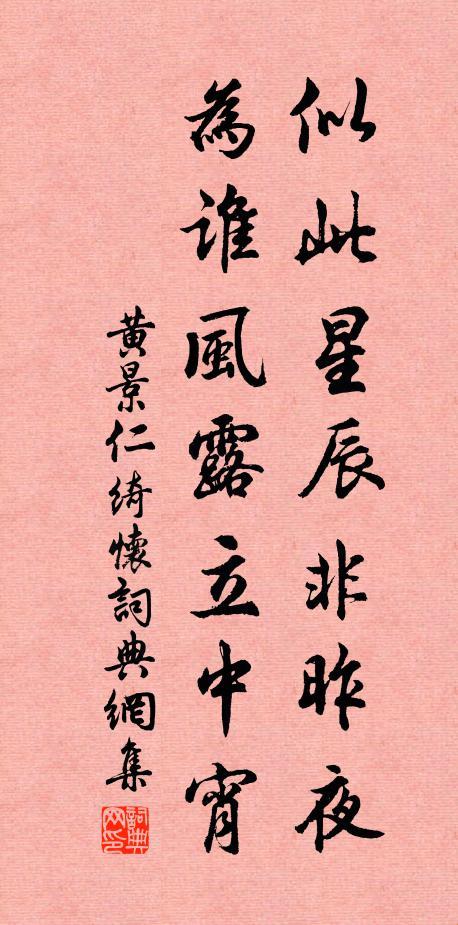 似此星辰非昨夜
為誰風露立中宵
黃景仁綺懷詞典網集
詞典网印